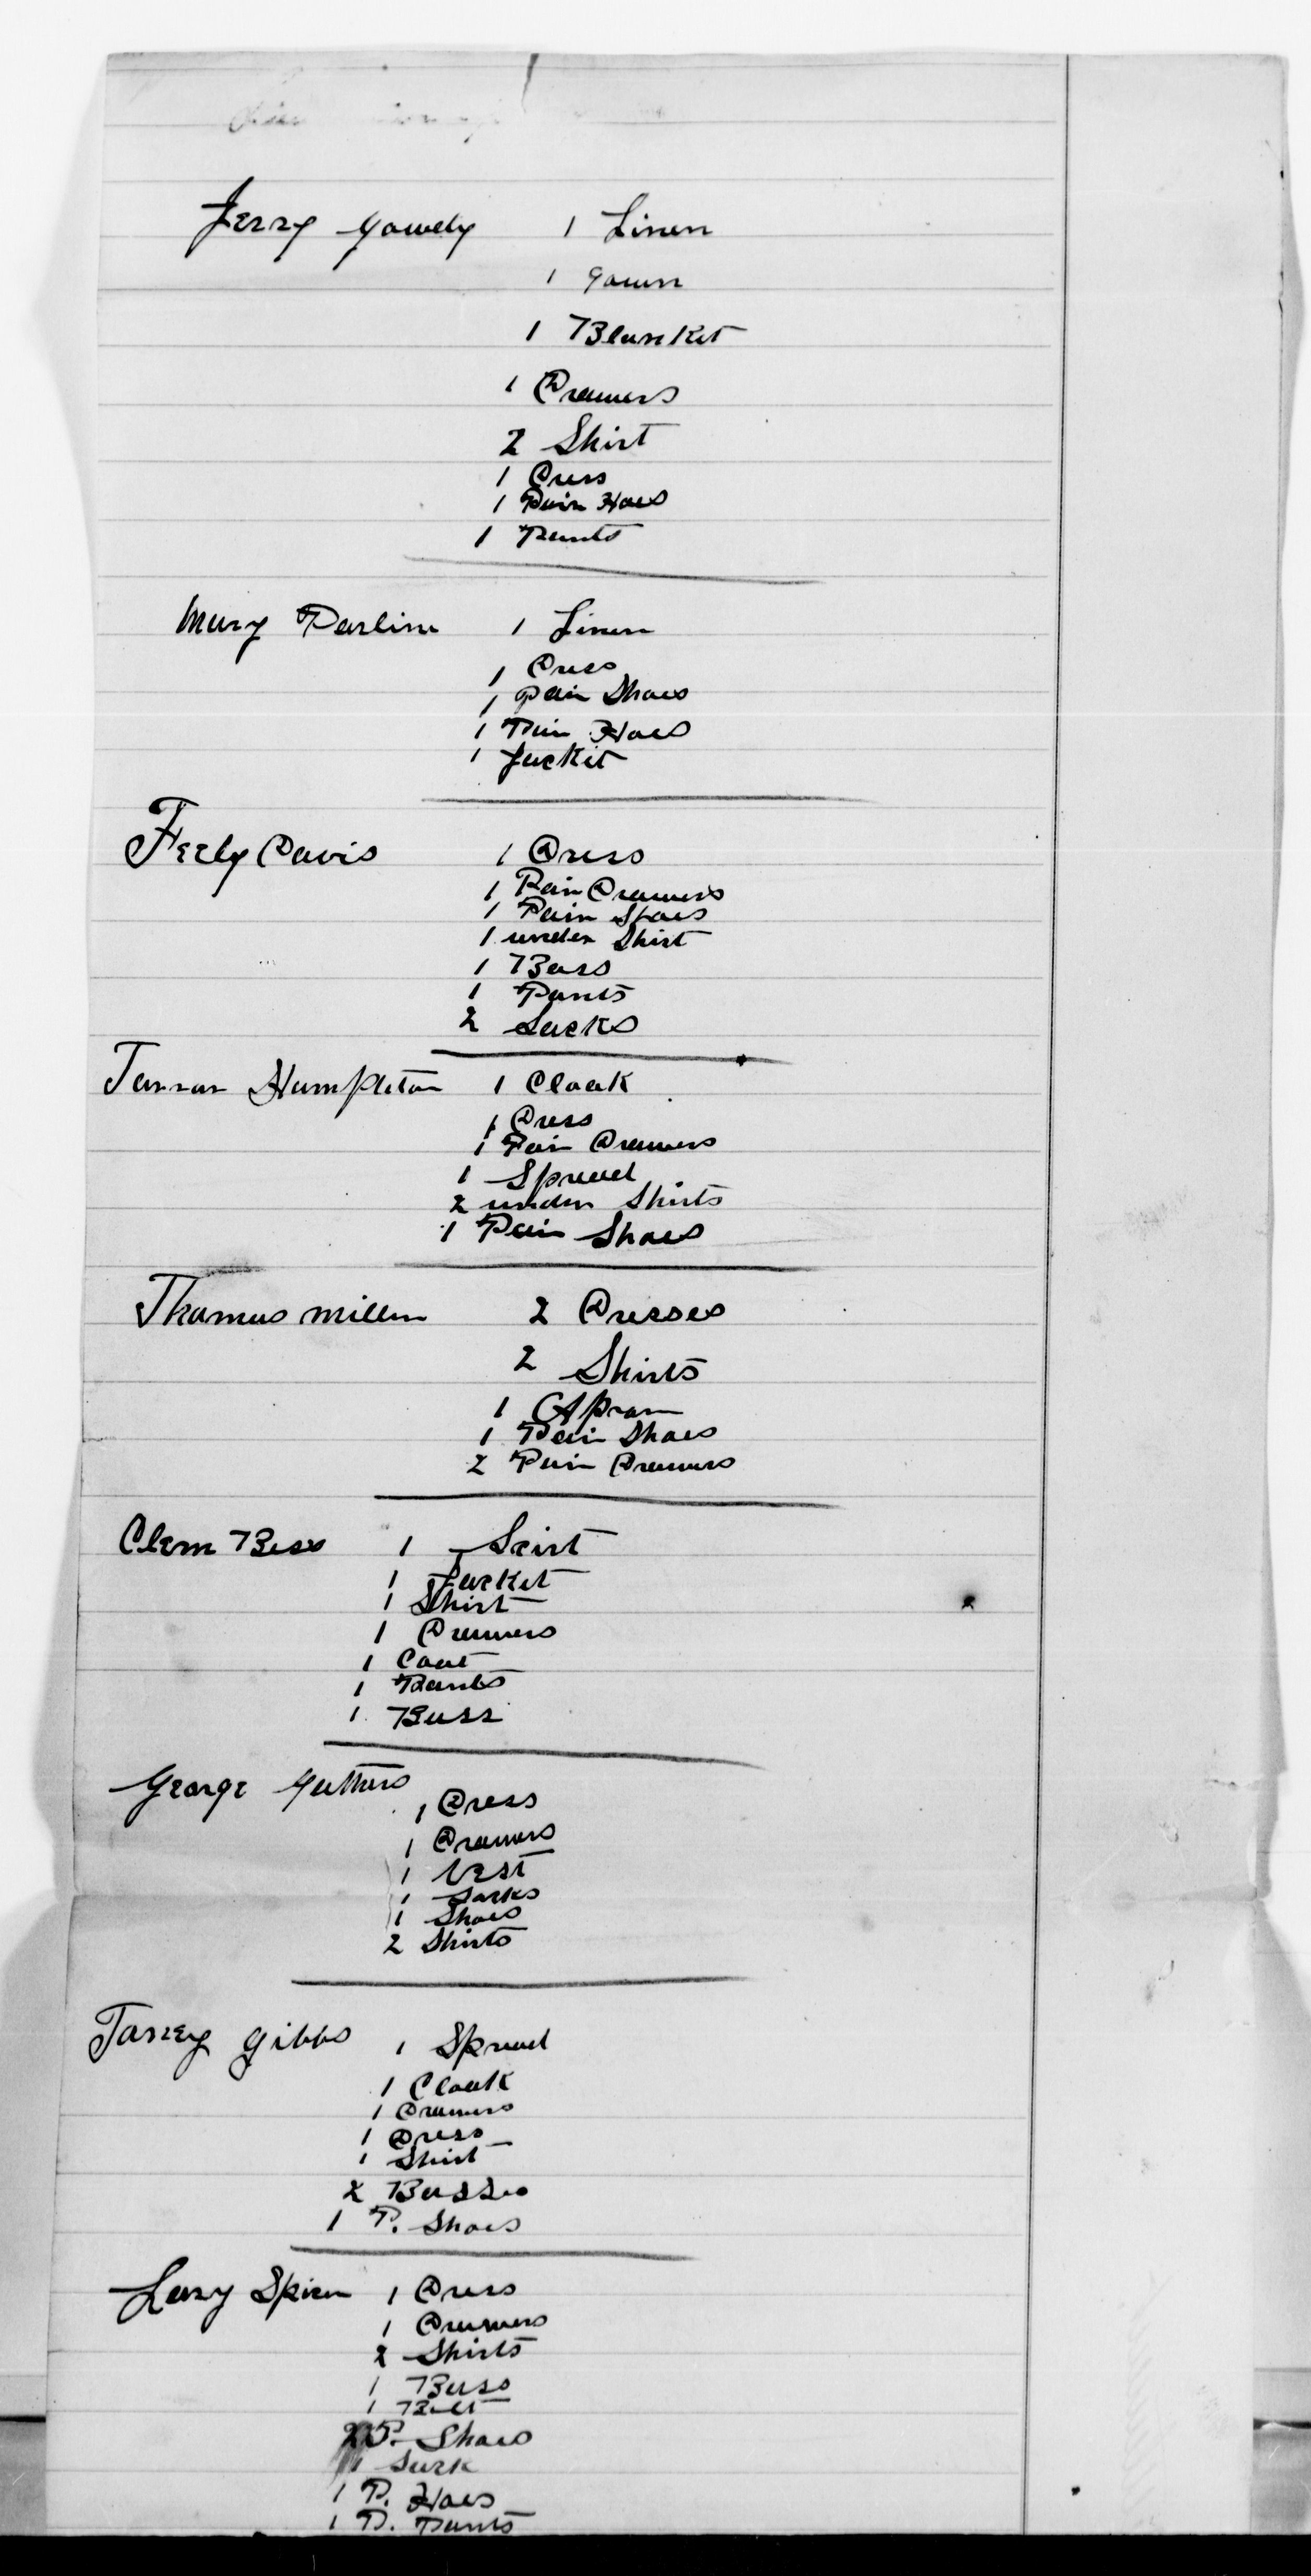 Jerry Gowdy 1 Linen
1 gown
1 Blanket
1 Drawers
2 Shirt
1 Dress
1 Pair Hoes
1 Pants
Mary Perline 1 Linen
1 Dress
1 pair Shoes
1 Pair Hoes
1 Jackit
Feely Davis 1 Dress
1 Pair Drawers
1 Pair Shoes
1 under Shirt
1 Bass
1 Pants
2 Sacks
Hampleton 1 Cloak
1 Dress
1 Pair Drawers
1 Spread
2 under Shirts
1 Pair Shoes
Thomas Miller 2 Dresses
2 Shirts
1 Apron
1 Pair Shoes
2 Pair Drawers
Clem Bess 1 Scirt
1 Jacket
1 Shirt
1 Drawers
1 Coat
1 Pants
1 Bass
George 1 Dress
1 Drawers
1 Vest
1 Sacks
1 Shoes
2 Shirts
Gibbs 1 Spread
1 Cloak
1 Drawers
1 Dress
1 Shirt
2 Basses
1 P. Shoes
Spicer 1 Dress
1 Drawers
2 Shirts
1 Bass
1 Belt
2 P. Shoes
1 Sack
1 P. Hoes
1 P. Pants